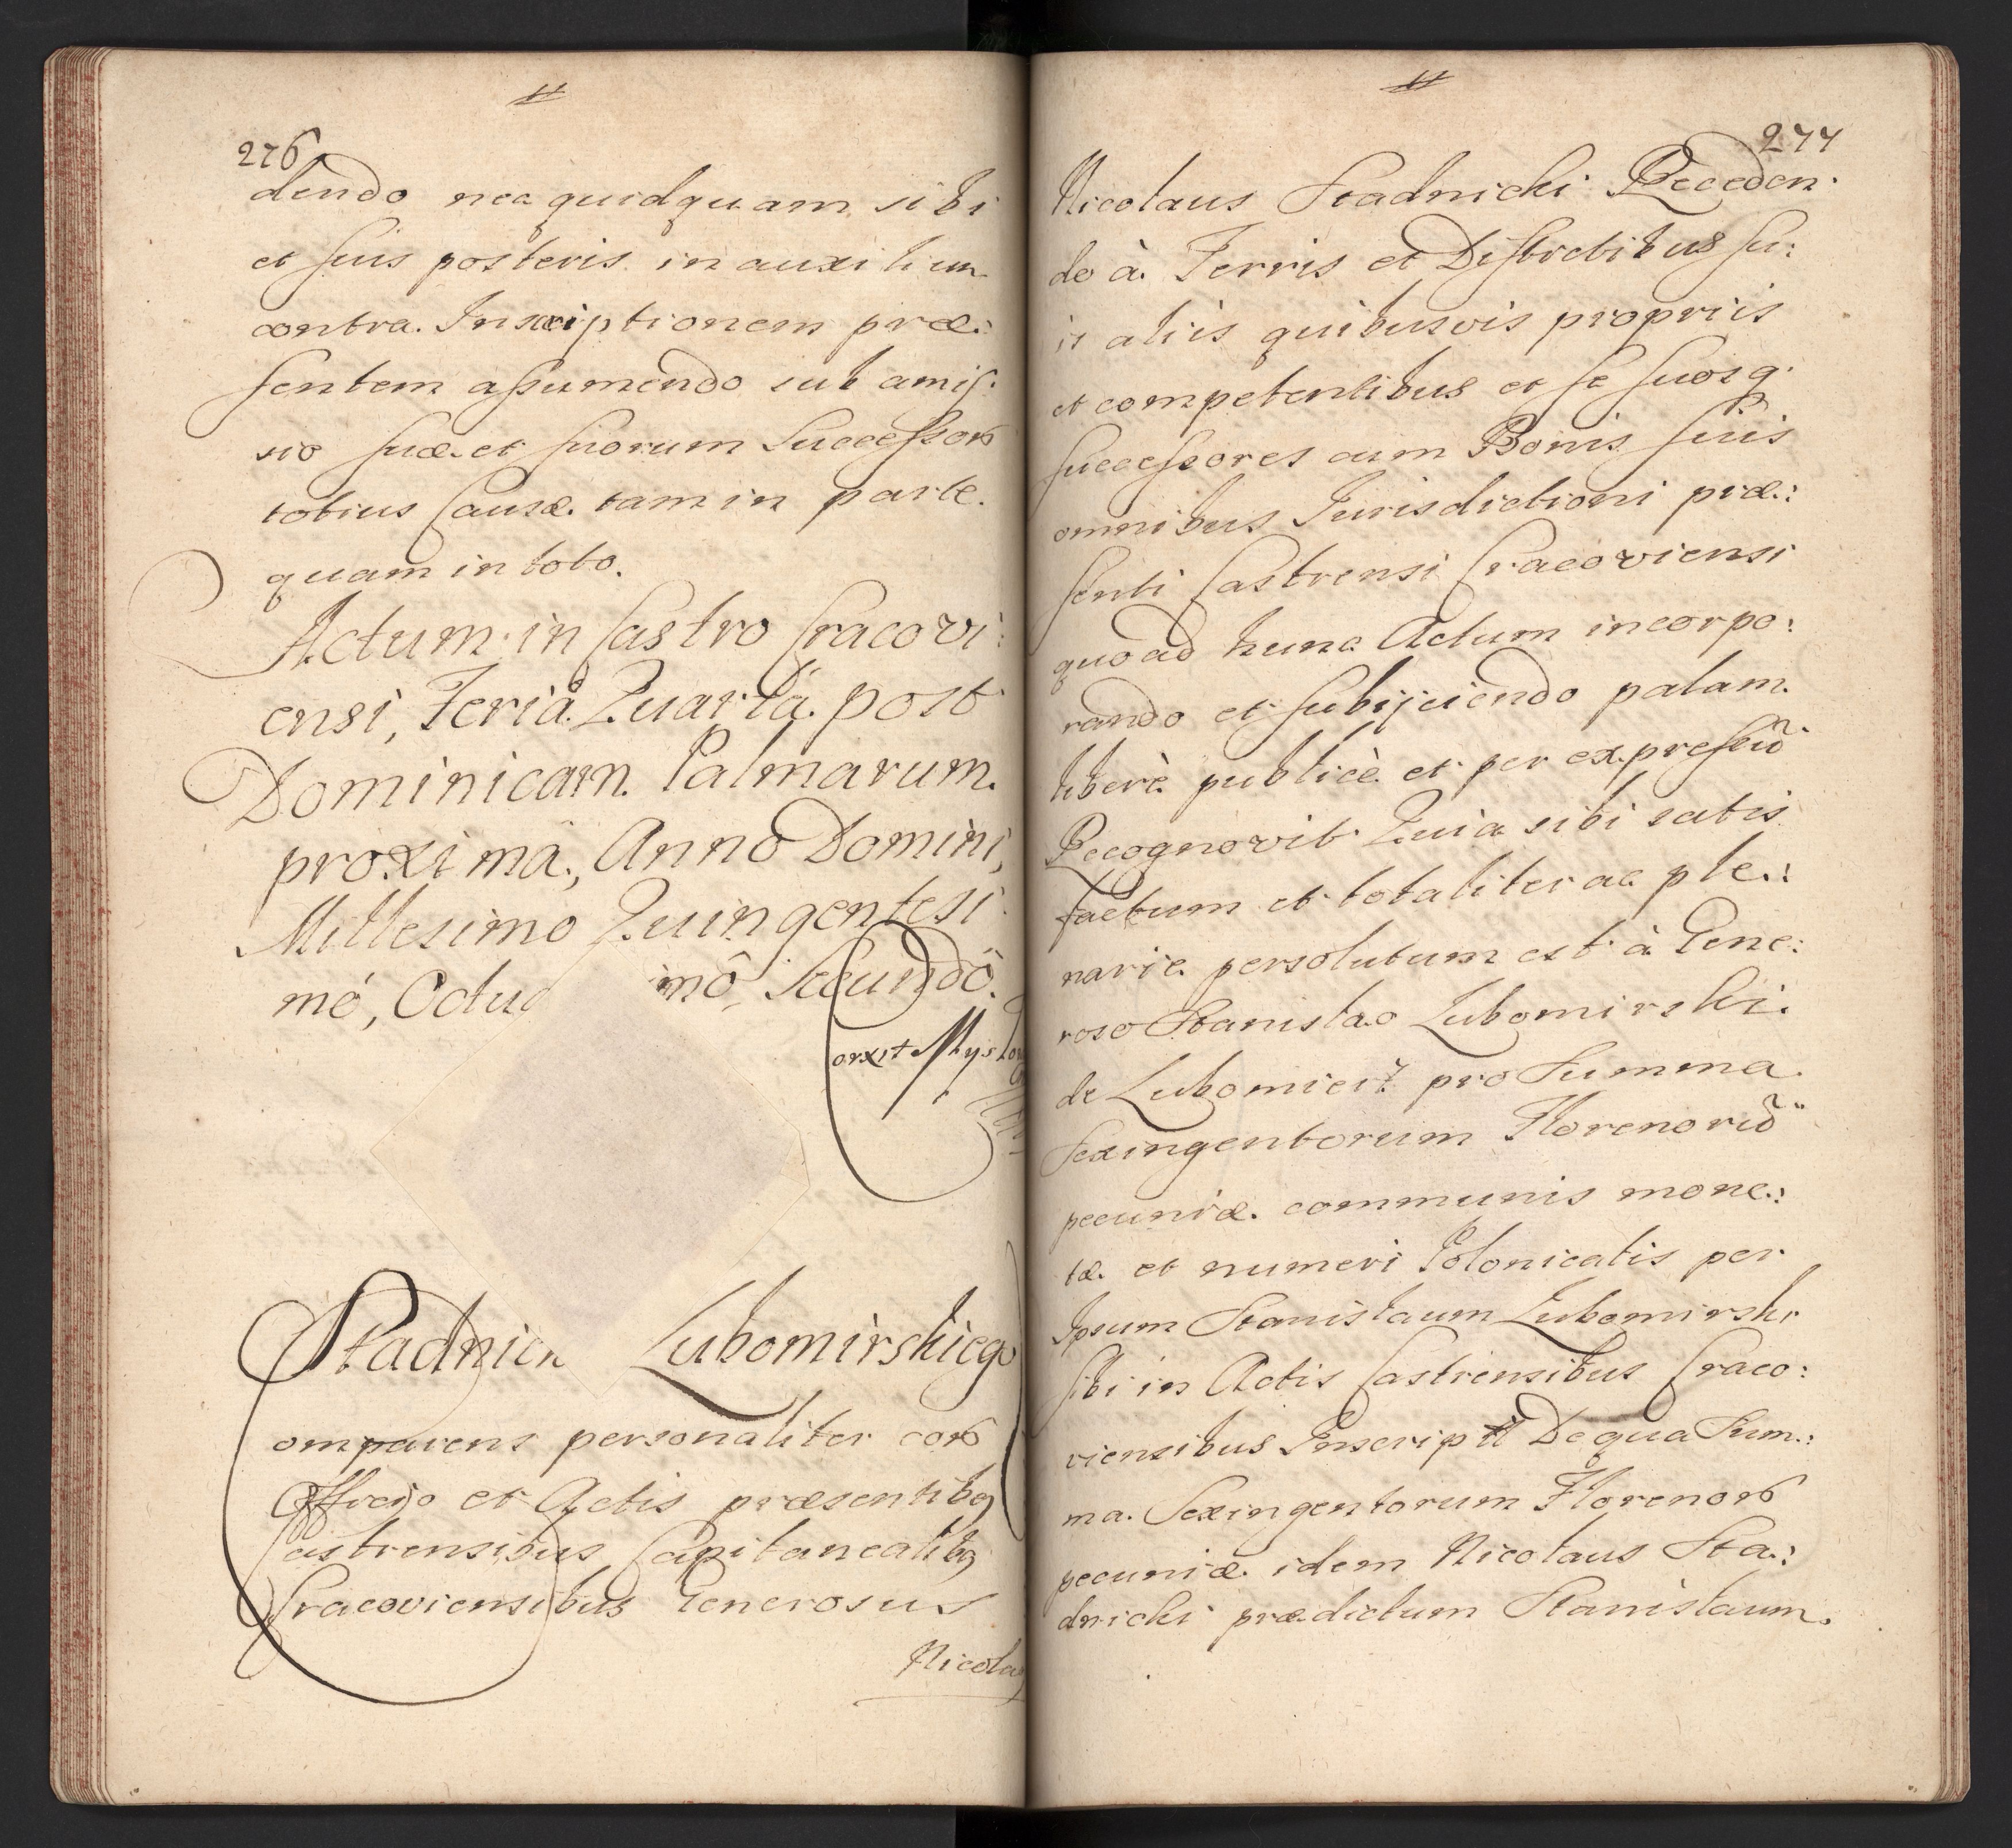 276
dendo nec quidquam sibi
et suis posteris in auxilium
contra Inscriptionem præ:
sentem assumendo sub amis:
sio suæ et suorum Successorũ
totius Causæ tam in parte
quam in toto.
Actum in Castro Cracovi:
ensi, Feriâ Quartâ post
Dominicam Palmarum
proximâ, Anno Domini,
Millesimo Quingentesi:
mó, Octua mô Secundô.
Stadnick Lubomirskiego
omparens personaliter corã
Officio et Actis præsentibq
Castrensibus Capitanealibq
Cracoviensibus Generosus
Nicolaq
277
Nicolaus Stadnicki Receden:
do à Terris et Districtibus su:
is aliis quibusvis propriis
et competentibus et se suosq:
successores cum Bonis suis
omnibus Jurisdictioni præ:
senti Castrensi Cracoviensi
quo ad hunc Actum incorpo:
rando et subijciendo palam
liberè publicè et per expressũ
Recognovit Quia sibi satis
factum et totaliter ac ple:
narie persolutum est à Gene:
roso Stanislao Lubomirski
de Lubomierz pro Summa
Sexingentorum Florenorũ
pecuniæ communis mone:
tæ et numeri Polonicalis per
Ipsum Stanislaum Lubomirski
sibi in Actis Castrensibus Craco:
viensibus Inscripti De qua Sum:
ma Sexingentorum Florenorũ
pecuniæ idem Nicolaus Sta:
dnicki prædictum Stanislaum